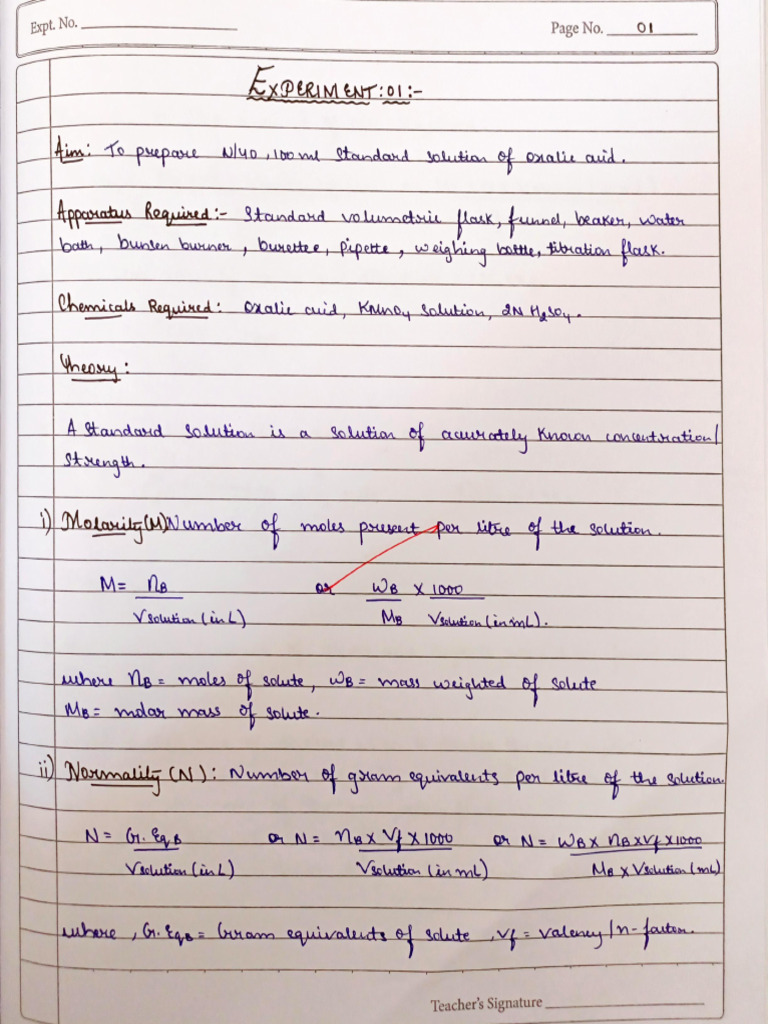 Expt. No.
Page No. 01
EXPERIMENT:01:-
Aim: To prepare N/40, 100ml standard solution of oxalic acid.
Apparatus Required:- Standard volumetric flask, funnel, beaker, water
bath, bunsen burner, burettee, pipette, weighing bottle, titration flask.
Chemicals Required: Oxalic acid, KMnO4 solution, 2N H2SO4.
Theory:
A standard solution is a solution of accurately known concentration/
strength.
i) Molarity(M) Number of moles present per litre of the solution.
M= nB or WB X 1000
Vsolution(in L) MB Vsolution(in mL).
where nB= moles of solute, WB= mass weighted of solute
MB= molar mass of solute.
ii) Normality (N): Number of gram equivalents per litre of the solution.
N= Gr. EqB or N= nB x Vf x 1000 or N= WB x nB x Vf x 1000
Vsolution(in L) Vsolution (in mL) MB x Vsolution(mL)
where, Gr. EqB= Gram equivalents of solute, Vf= valency/n-factor.
Teacher's Signature